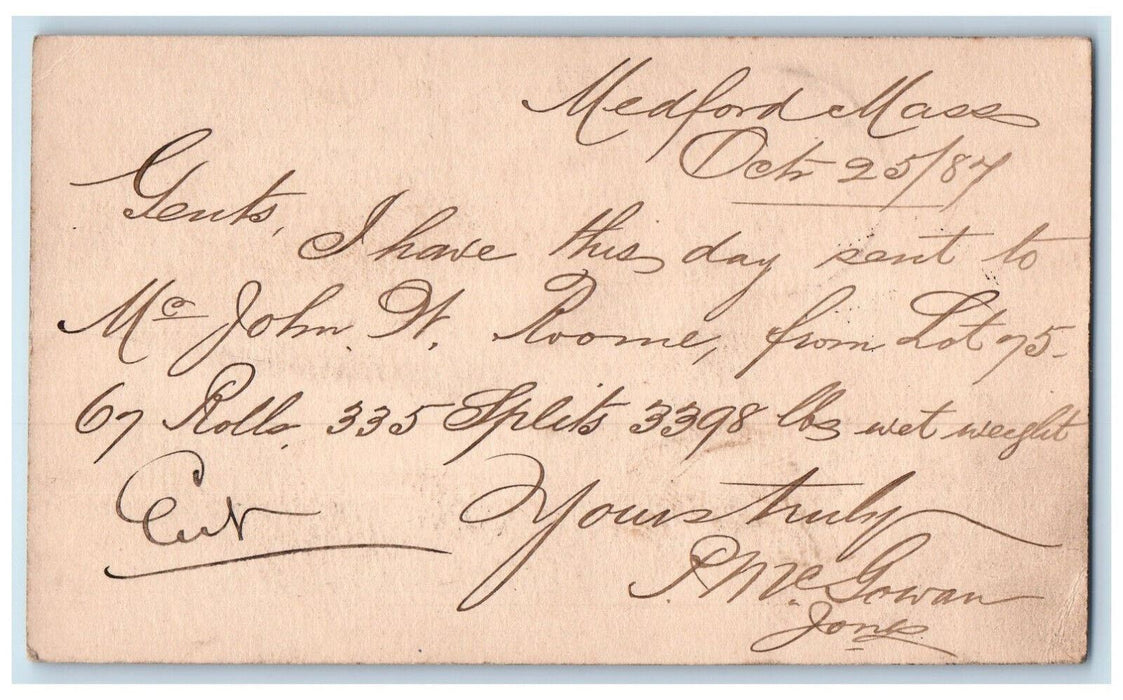 Medford Mass
Oct 25/87
Gents,
I have this day sent to
Mr John W. Roome, from Lot 75-
67 Rolls. 335 Splits 3398 lbs wet weight
Yours truly
P. Mc Gowan
Jones